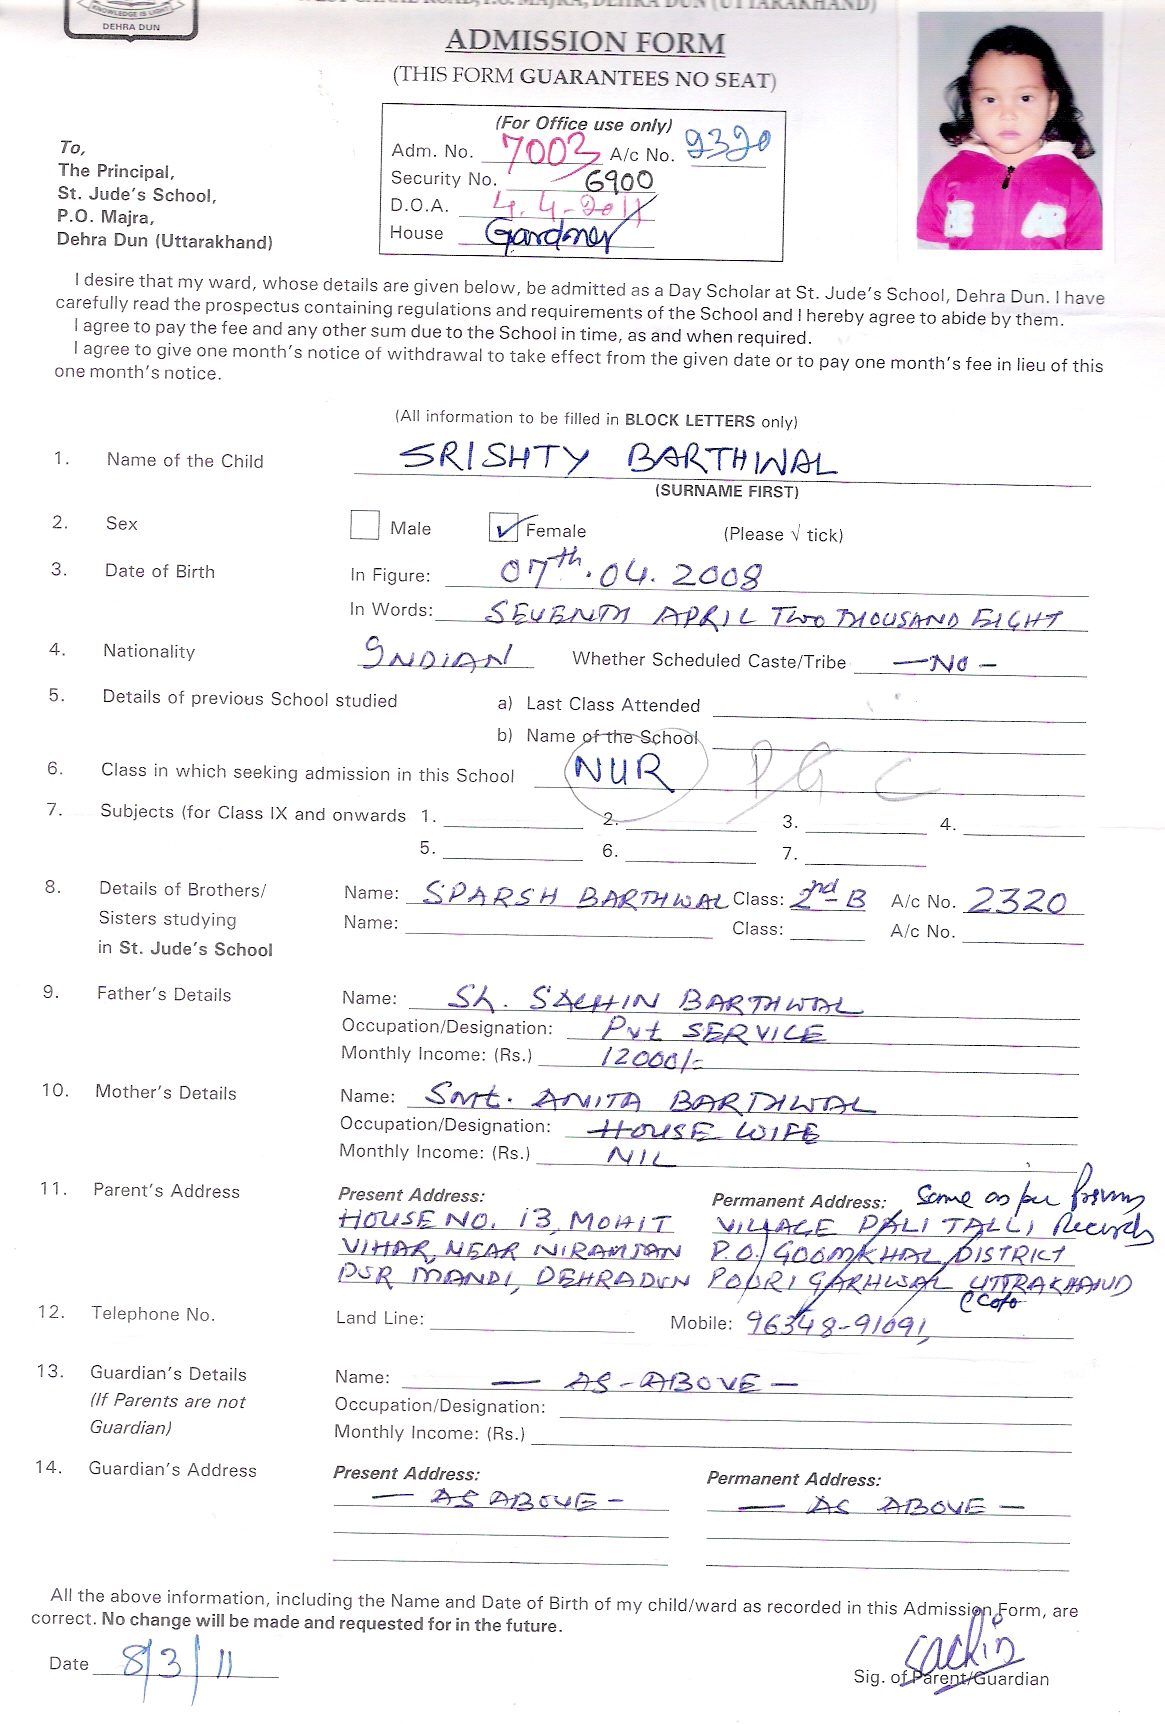 KNOWLEDGE IS LIGHT
DEHRA DUN
WEST CANAL ROAD, P.O. MAJRA, DEHRA DUN (UTTARAKHAND)
ADMISSION FORM
(THIS FORM GUARANTEES NO SEAT)
(For Office use only)
Adm. No. 7003 A/c No. 2320
Security No. 6900
D.O.A. 4.4-2011
House Gardner
To,
The Principal,
St. Jude's School,
P.O. Majra,
Dehra Dun (Uttarakhand)
I desire that my ward, whose details are given below, be admitted as a Day Scholar at St. Jude's School, Dehra Dun. I have
carefully read the prospectus containing regulations and requirements of the School and I hereby agree to abide by them.
I agree to pay the fee and any other sum due to the School in time, as and when required.
I agree to give one month's notice of withdrawal to take effect from the given date or to pay one month's fee in lieu of this
one month's notice.
(All information to be filled in BLOCK LETTERS only)
1. Name of the Child SRISHTY BARTHWAL
(SURNAME FIRST)
2. Sex Male ✓ Female (Please √ tick)
3. Date of Birth In Figure: 07th.04.2008
In Words: SEVENTH APRIL TWO THOUSAND EIGHT
4. Nationality INDIAN Whether Scheduled Caste/Tribe —No—
5. Details of previous School studied a) Last Class Attended
b) Name of the School
6. Class in which seeking admission in this School NUR P G C
7. Subjects (for Class IX and onwards 1. 2. 3. 4.
5. 6. 7.
8. Details of Brothers/ Name: SPARSH BARTHWAL Class: 2nd B A/c No. 2320
Sisters studying Name: Class: A/c No.
in St. Jude's School
9. Father's Details Name: Sh. SACHIN BARTHWAL
Occupation/Designation: Pvt SERVICE
Monthly Income: (Rs.) 12000/-
10. Mother's Details Name: Smt. ANITA BARTHWAL
Occupation/Designation: HOUSE WIFE
Monthly Income: (Rs.) NIL
11. Parent's Address Present Address: Permanent Address: Same as per Previous
HOUSE NO. 13, MOHIT VILLAGE PALI TALLI Records
VIHAR, NEAR NIRANJAN P.O. GOOMKHAL DISTRICT
PUR MANDI, DEHRADUN POURI GARHWAL UTTRAKHAND
12. Telephone No. Land Line: Mobile: 96348-91091,
13. Guardian's Details Name: — AS-ABOVE —
(If Parents are not Occupation/Designation:
Guardian) Monthly Income: (Rs.)
14. Guardian's Address Present Address: Permanent Address:
— AS ABOVE — — AS ABOVE —
All the above information, including the Name and Date of Birth of my child/ward as recorded in this Admission Form, are
correct. No change will be made and requested for in the future.
Date 8/3/11 Sachin
Sig. of Parent/Guardian